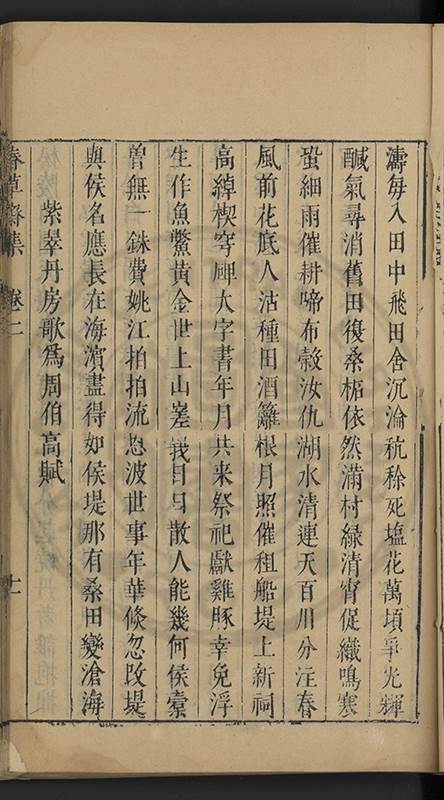 濤每入田中飛田舍沉淪秔稌死塩花萬頃爭光輝
醎氣尋消舊田復桑柘依然滿村緑清宵促織鳴寒
蛩細雨催耕啼布穀汝仇湖水清連天百川分注春
風前花底人沽種田酒籬根月照催租船堤上新祠
高綽楔穹碑大字書年月共来祭祀獻雞豚幸免浮
生作魚鱉黄金世上山嵳峩日日散人能幾何侯橐
曽無一銖費姚江拍拍流恩波世事年華倐忽攺堤
與侯名應長在海濱盡得如侯堤那有桑田變滄海
紫翠丹房歌爲周伯高賦
春草齋集 卷二 十一